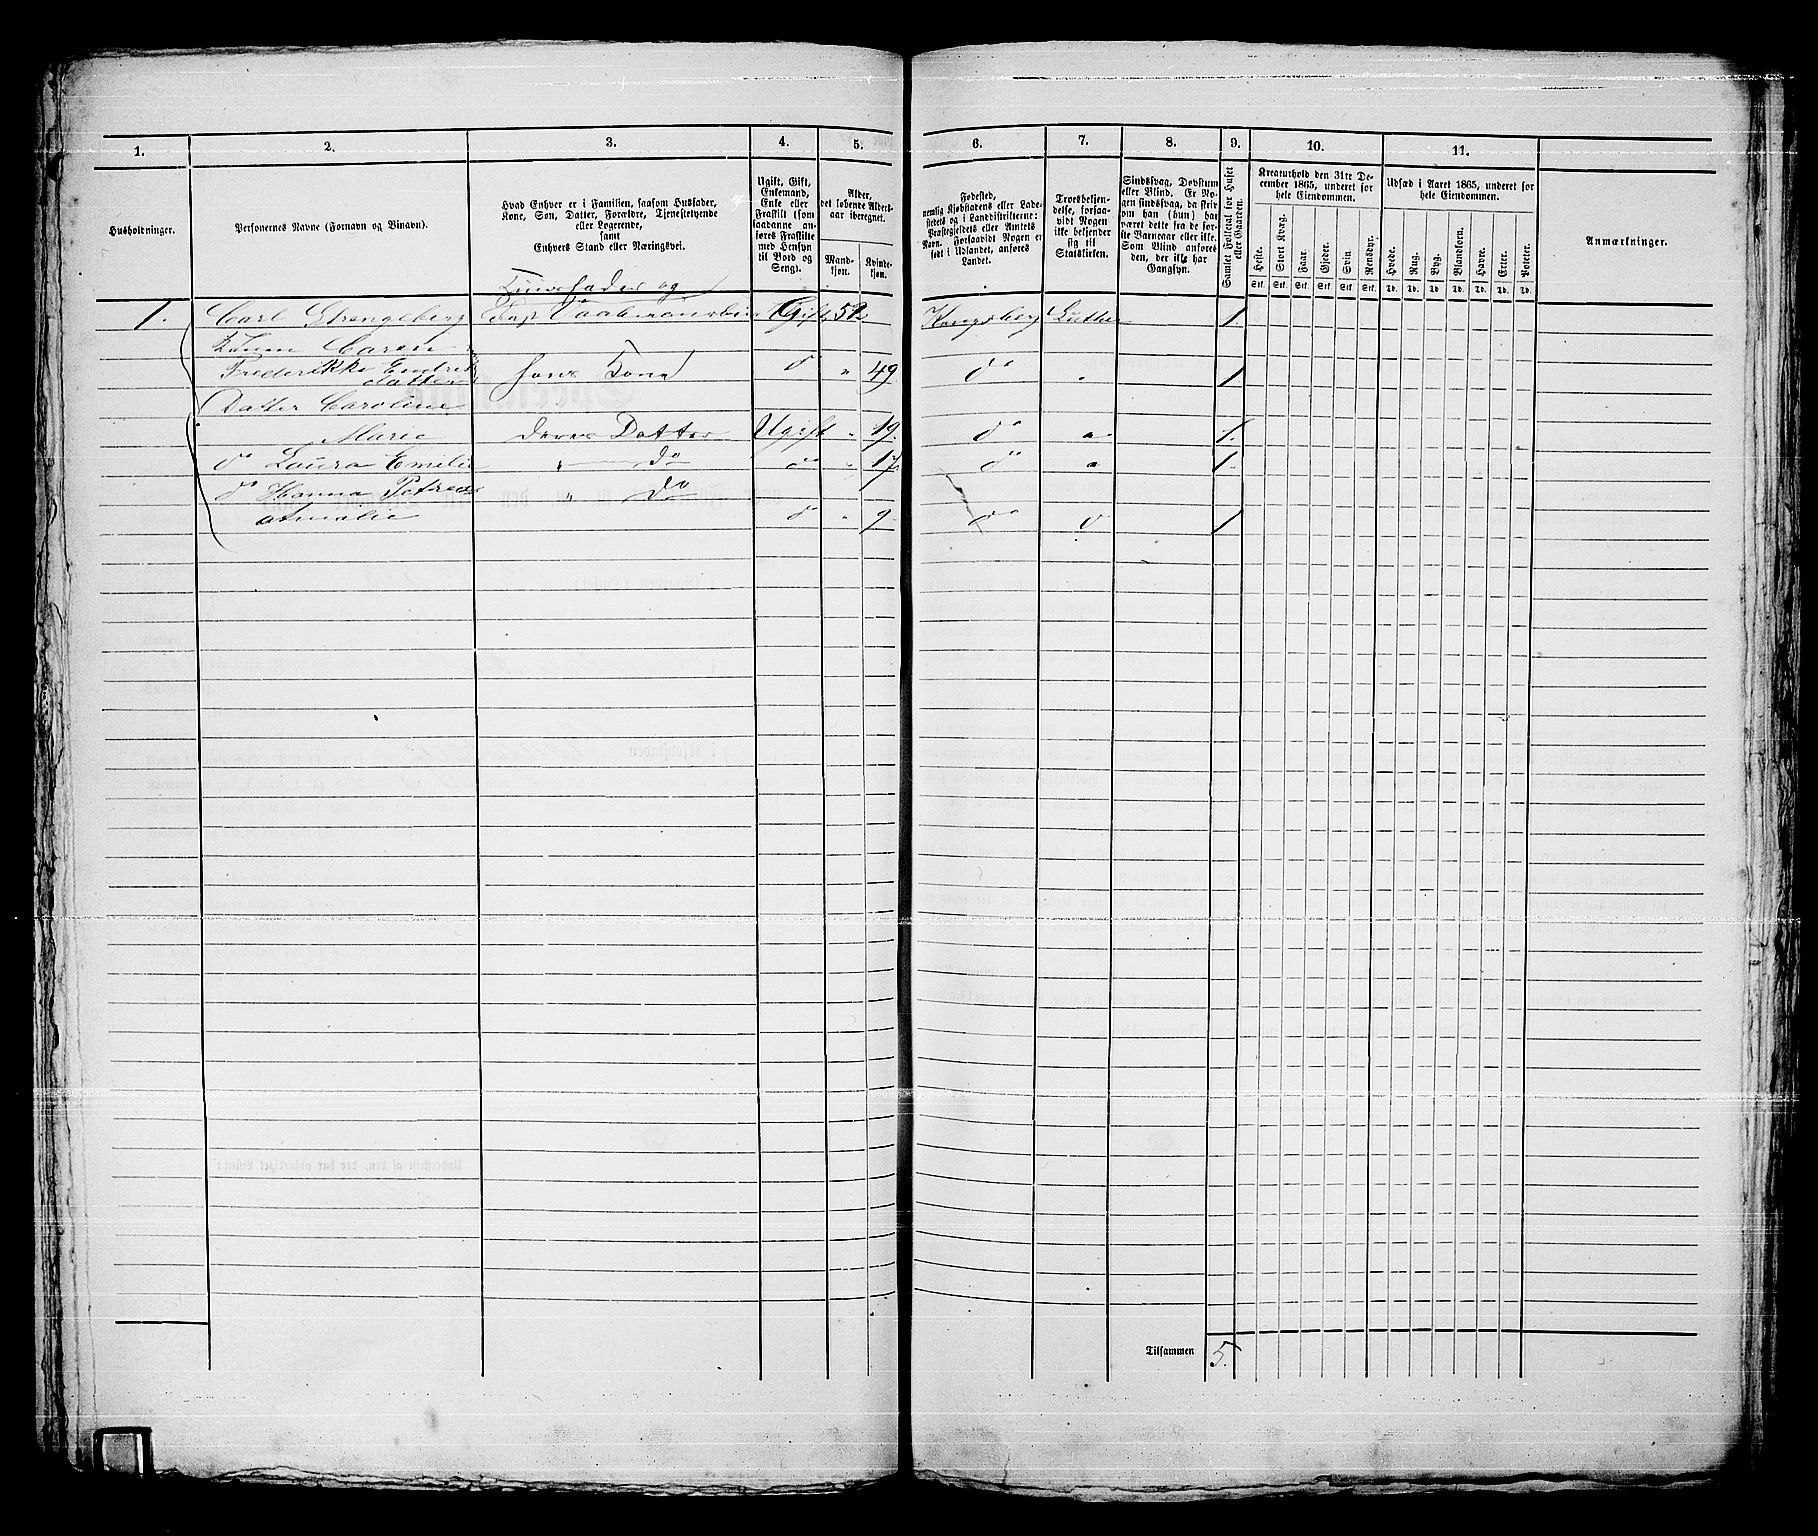 1.
2.
3.
4.
5.
6.
7.
8.
9.
10.
11.
Husholdninger.
Personernes Navne (Fornavn og Binavn).
Hvad Enhver er i Familien, saasom Husfader,
Kone, Søn, Datter, Forældre, Tjenestetyende
eller Logerende,
samt
Enhvers Stand eller Næringsvei.
Ugift, Gift,
Enkemand,
Enke eller
Fraskilt (som
saadanne an-
føres Fraskilte
med Hensyn
til Bord og
Seng).
Alder,
det løbende Alders-
aar iberegnet.
Mand-
kjøn.
Kvinde-
kjøn.
Fødested,
nemlig Kjøbstadens eller Lade-
stedets og i Landdistrikterne:
Præstegjeldets eller Amtets
Navn. Forsaavidt Nogen er
født i Udlandet, anføres
Landet.
Troesbekjen-
delse, forsaa-
vidt Nogen
ikke bekjender
sig til
Statskirken.
Sindssvag, Døvstum
eller Blind. Er No-
gen sindssvag, da skriv
om han (hun) har
været dette fra de før-
ste Barneaar eller ikke.
Som Blind anføres
den, der ikke har
Gangsyn.
Samlet Folketal for Huset
eller Gaarden.
Kreaturhold den 31te De-
cember 1865, underet for
hele Eiendommen.
Heste.
Stort Kvæg.
Faar.
Gjeder.
Svin
Rensdyr.
Stk. Stk. Stk. Stk. Stk. Stk.
Udsæd i Aaret 1865, underet for
hele Eiendommen.
Hvede.
Rug.
Byg.
Blandkorn.
Havre.
Erter.
Poteter.
Td. Td. Td. Td. Td. Td. Td.
Anmærkninger.
Huusfader og
1. Carl Strengeberg Gift 52 Kongsberg Luther 1.
Konen Caren
Frederikke
datter hans Kone do „ 49 do „ 1
Datter Caroline
Marie deres Datter Ugift „ 19. do „ 1.
do Laura Emilie „ do do „ 17 do „ 1.
do Hanna „ do
Amalie do „ 9 do 1
Tilsammen 5.